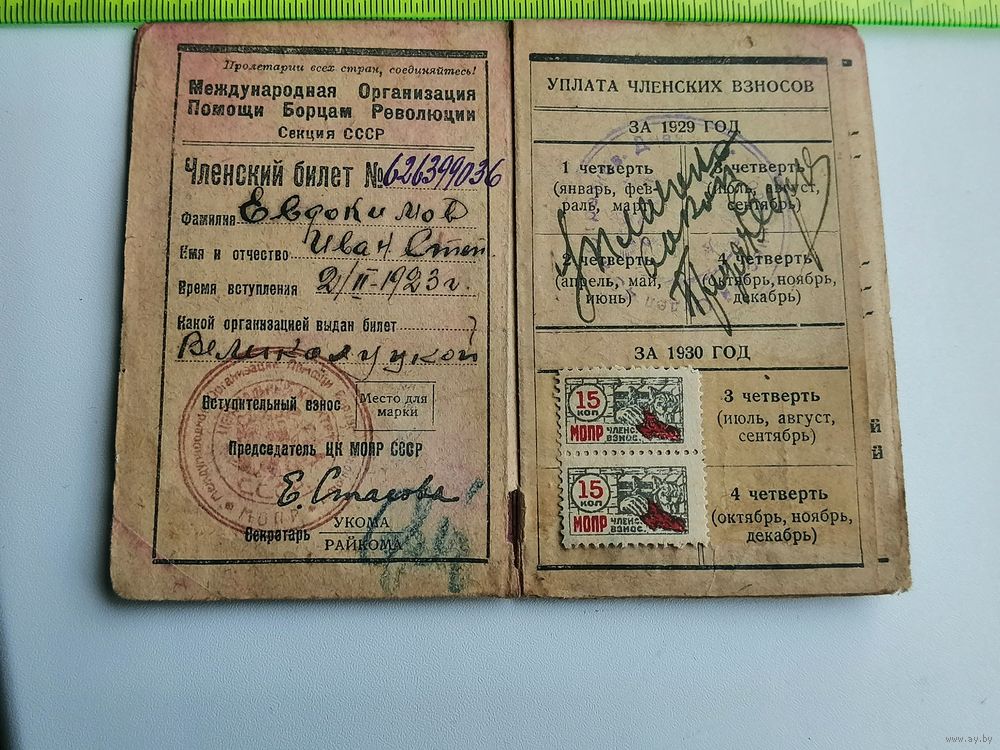 Пролетарии всех стран, соединяйтесь!
Международная Организация
Помощи Борцам Революции
Секция СССР
Членский билет № 626399036
Фамилия Евдокимов
Имя и отчество Иван Степ.
Время вступления 2/II-1923 г.
Какой организацией выдан билет
Великолуцкой
Вступительный взнос
Место для
марки
Председатель ЦК МОПР СССР
Е. Стасова
Секретарь
УКОМА
РАЙКОМА
УПЛАТА ЧЛЕНСКИХ ВЗНОСОВ
ЗА 1929 ГОД
1 четверть
(январь, фев-
раль, март)
3 четверть
(июль, август,
сентябрь)
2 четверть
(апрель, май,
июнь)
4 четверть
(октябрь, ноябрь,
декабрь)
Уплачено
ЗА 1930 ГОД
15
коп
МОПР
членск.
взнос.
15
коп
МОПР
членск.
взнос.
3 четверть
(июль, август,
сентябрь)
4 четверть
(октябрь, ноябрь,
декабрь)
www.ay.by